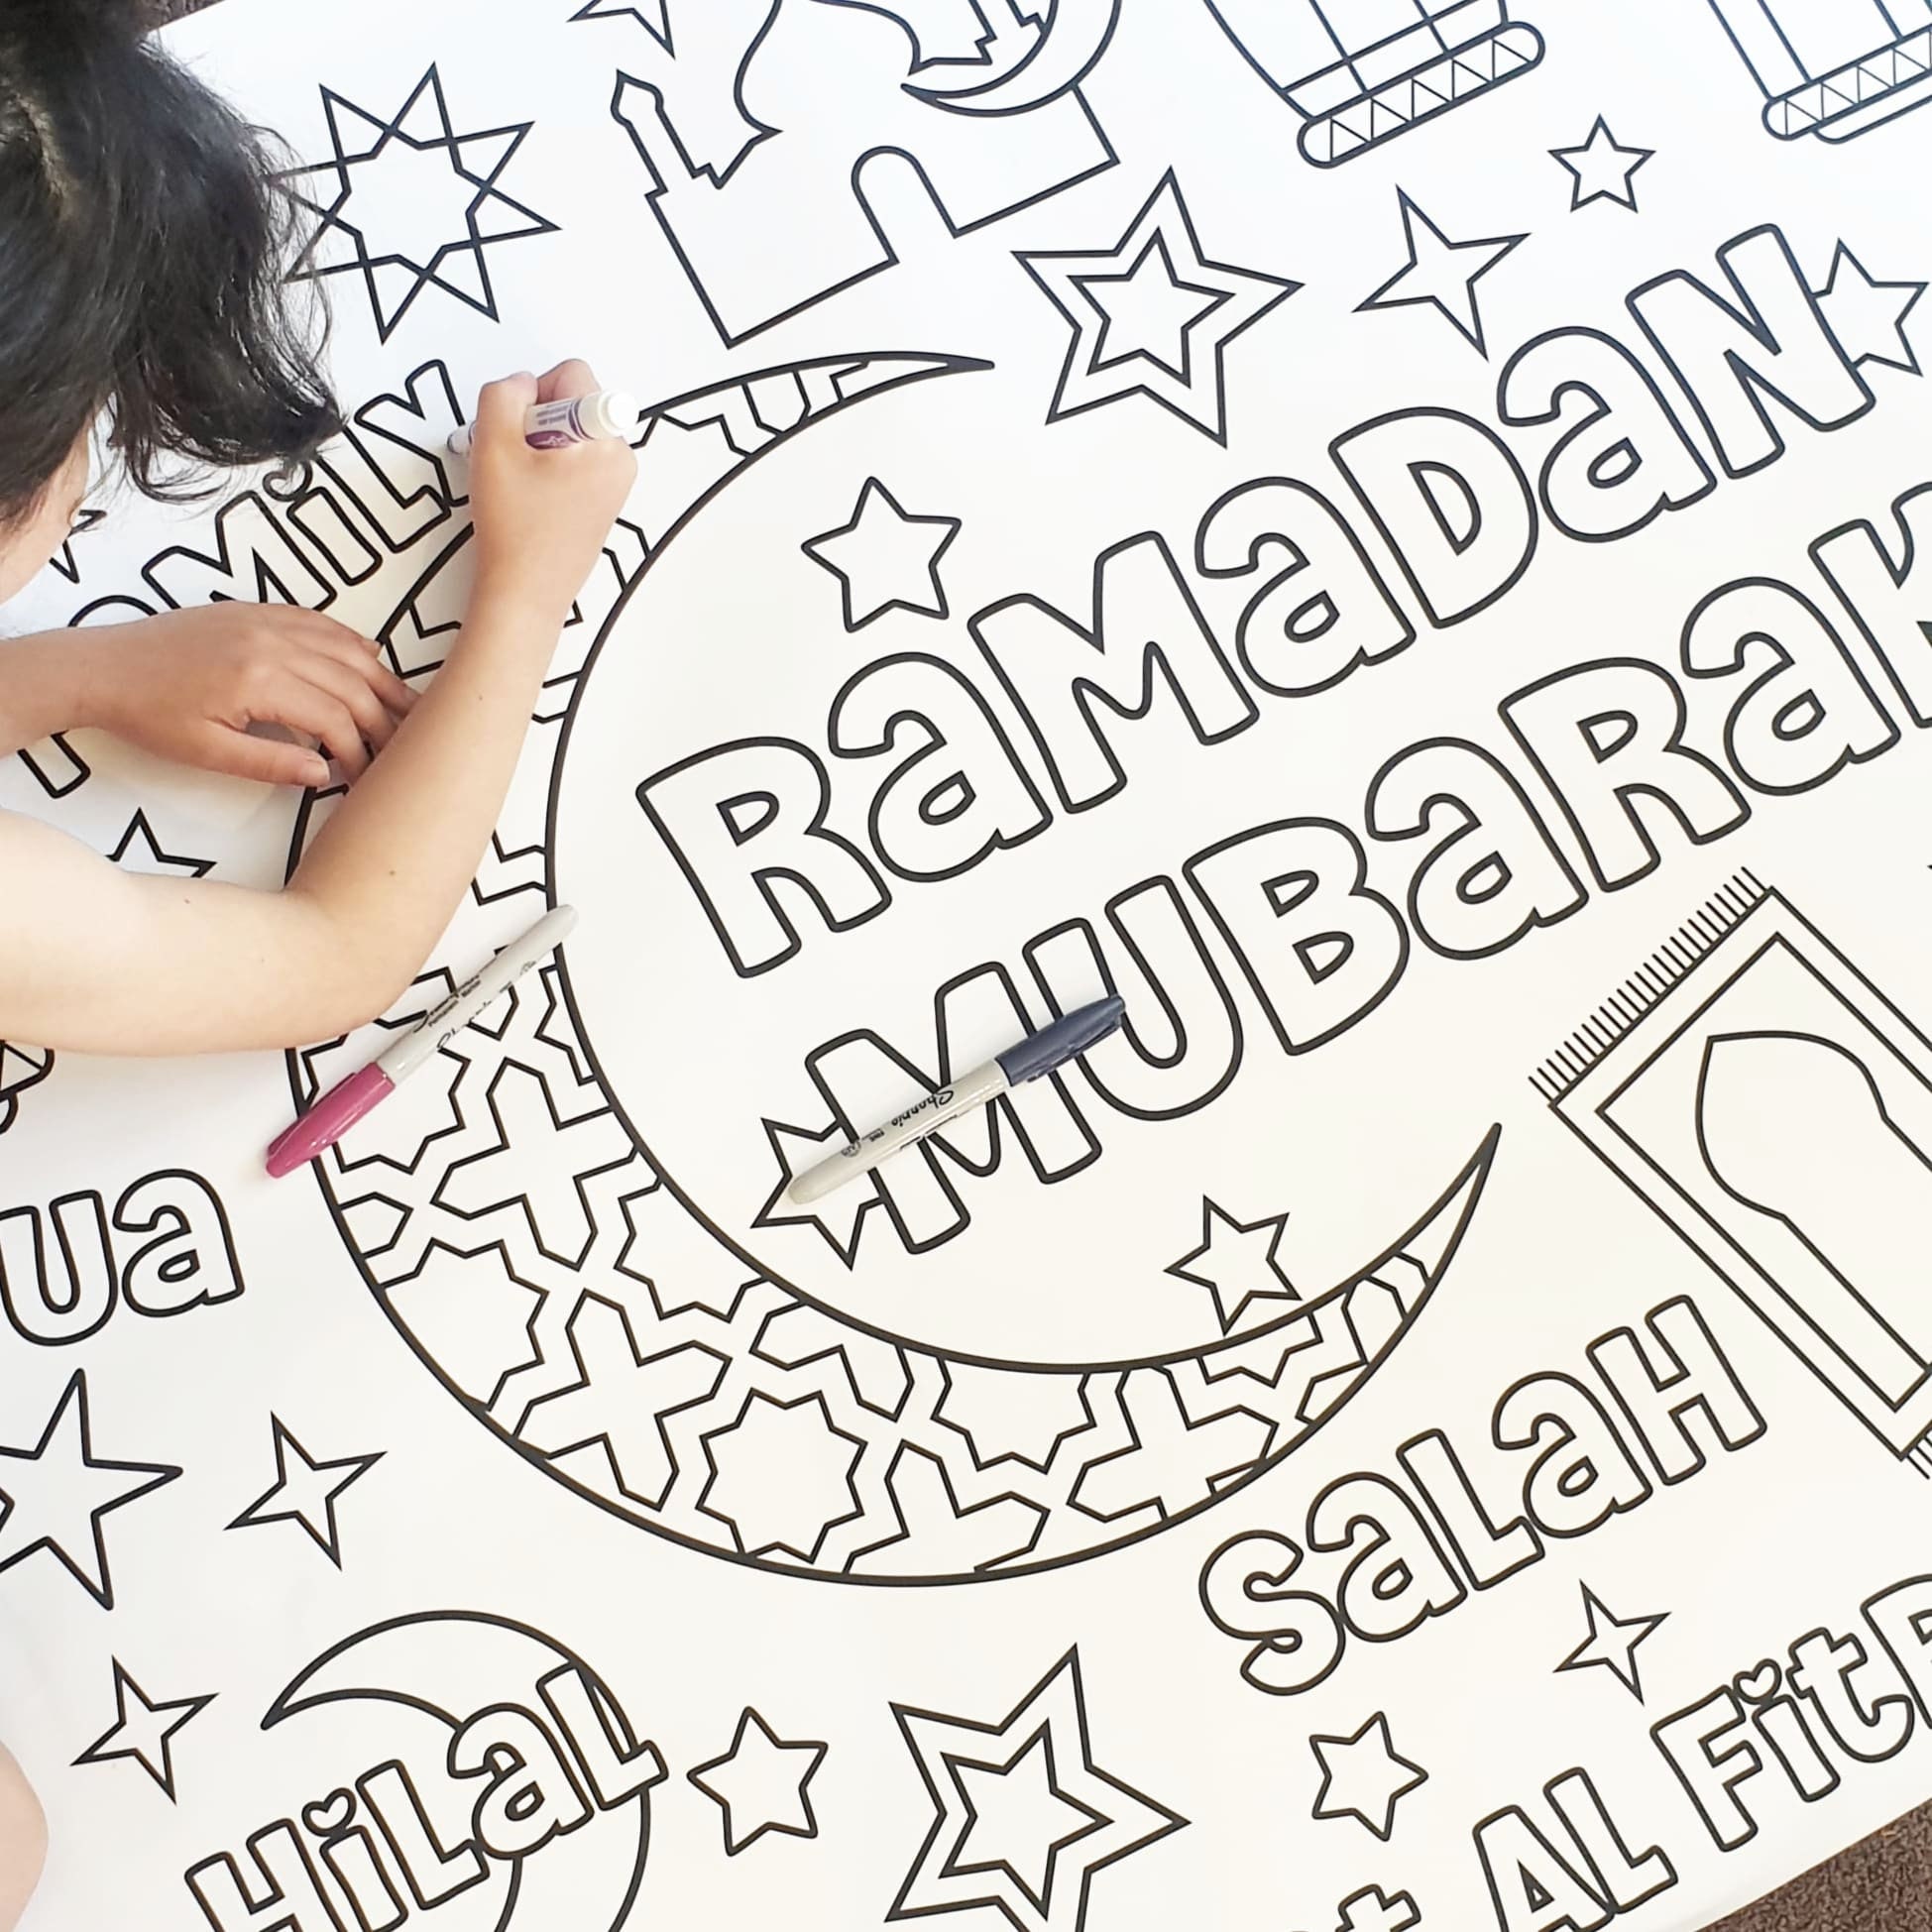 FaMiLY
RaMaDaN
MUBaRaK
Sharpie
Sharpie
Ua
SaLaH
HiLaL
t AL FitR